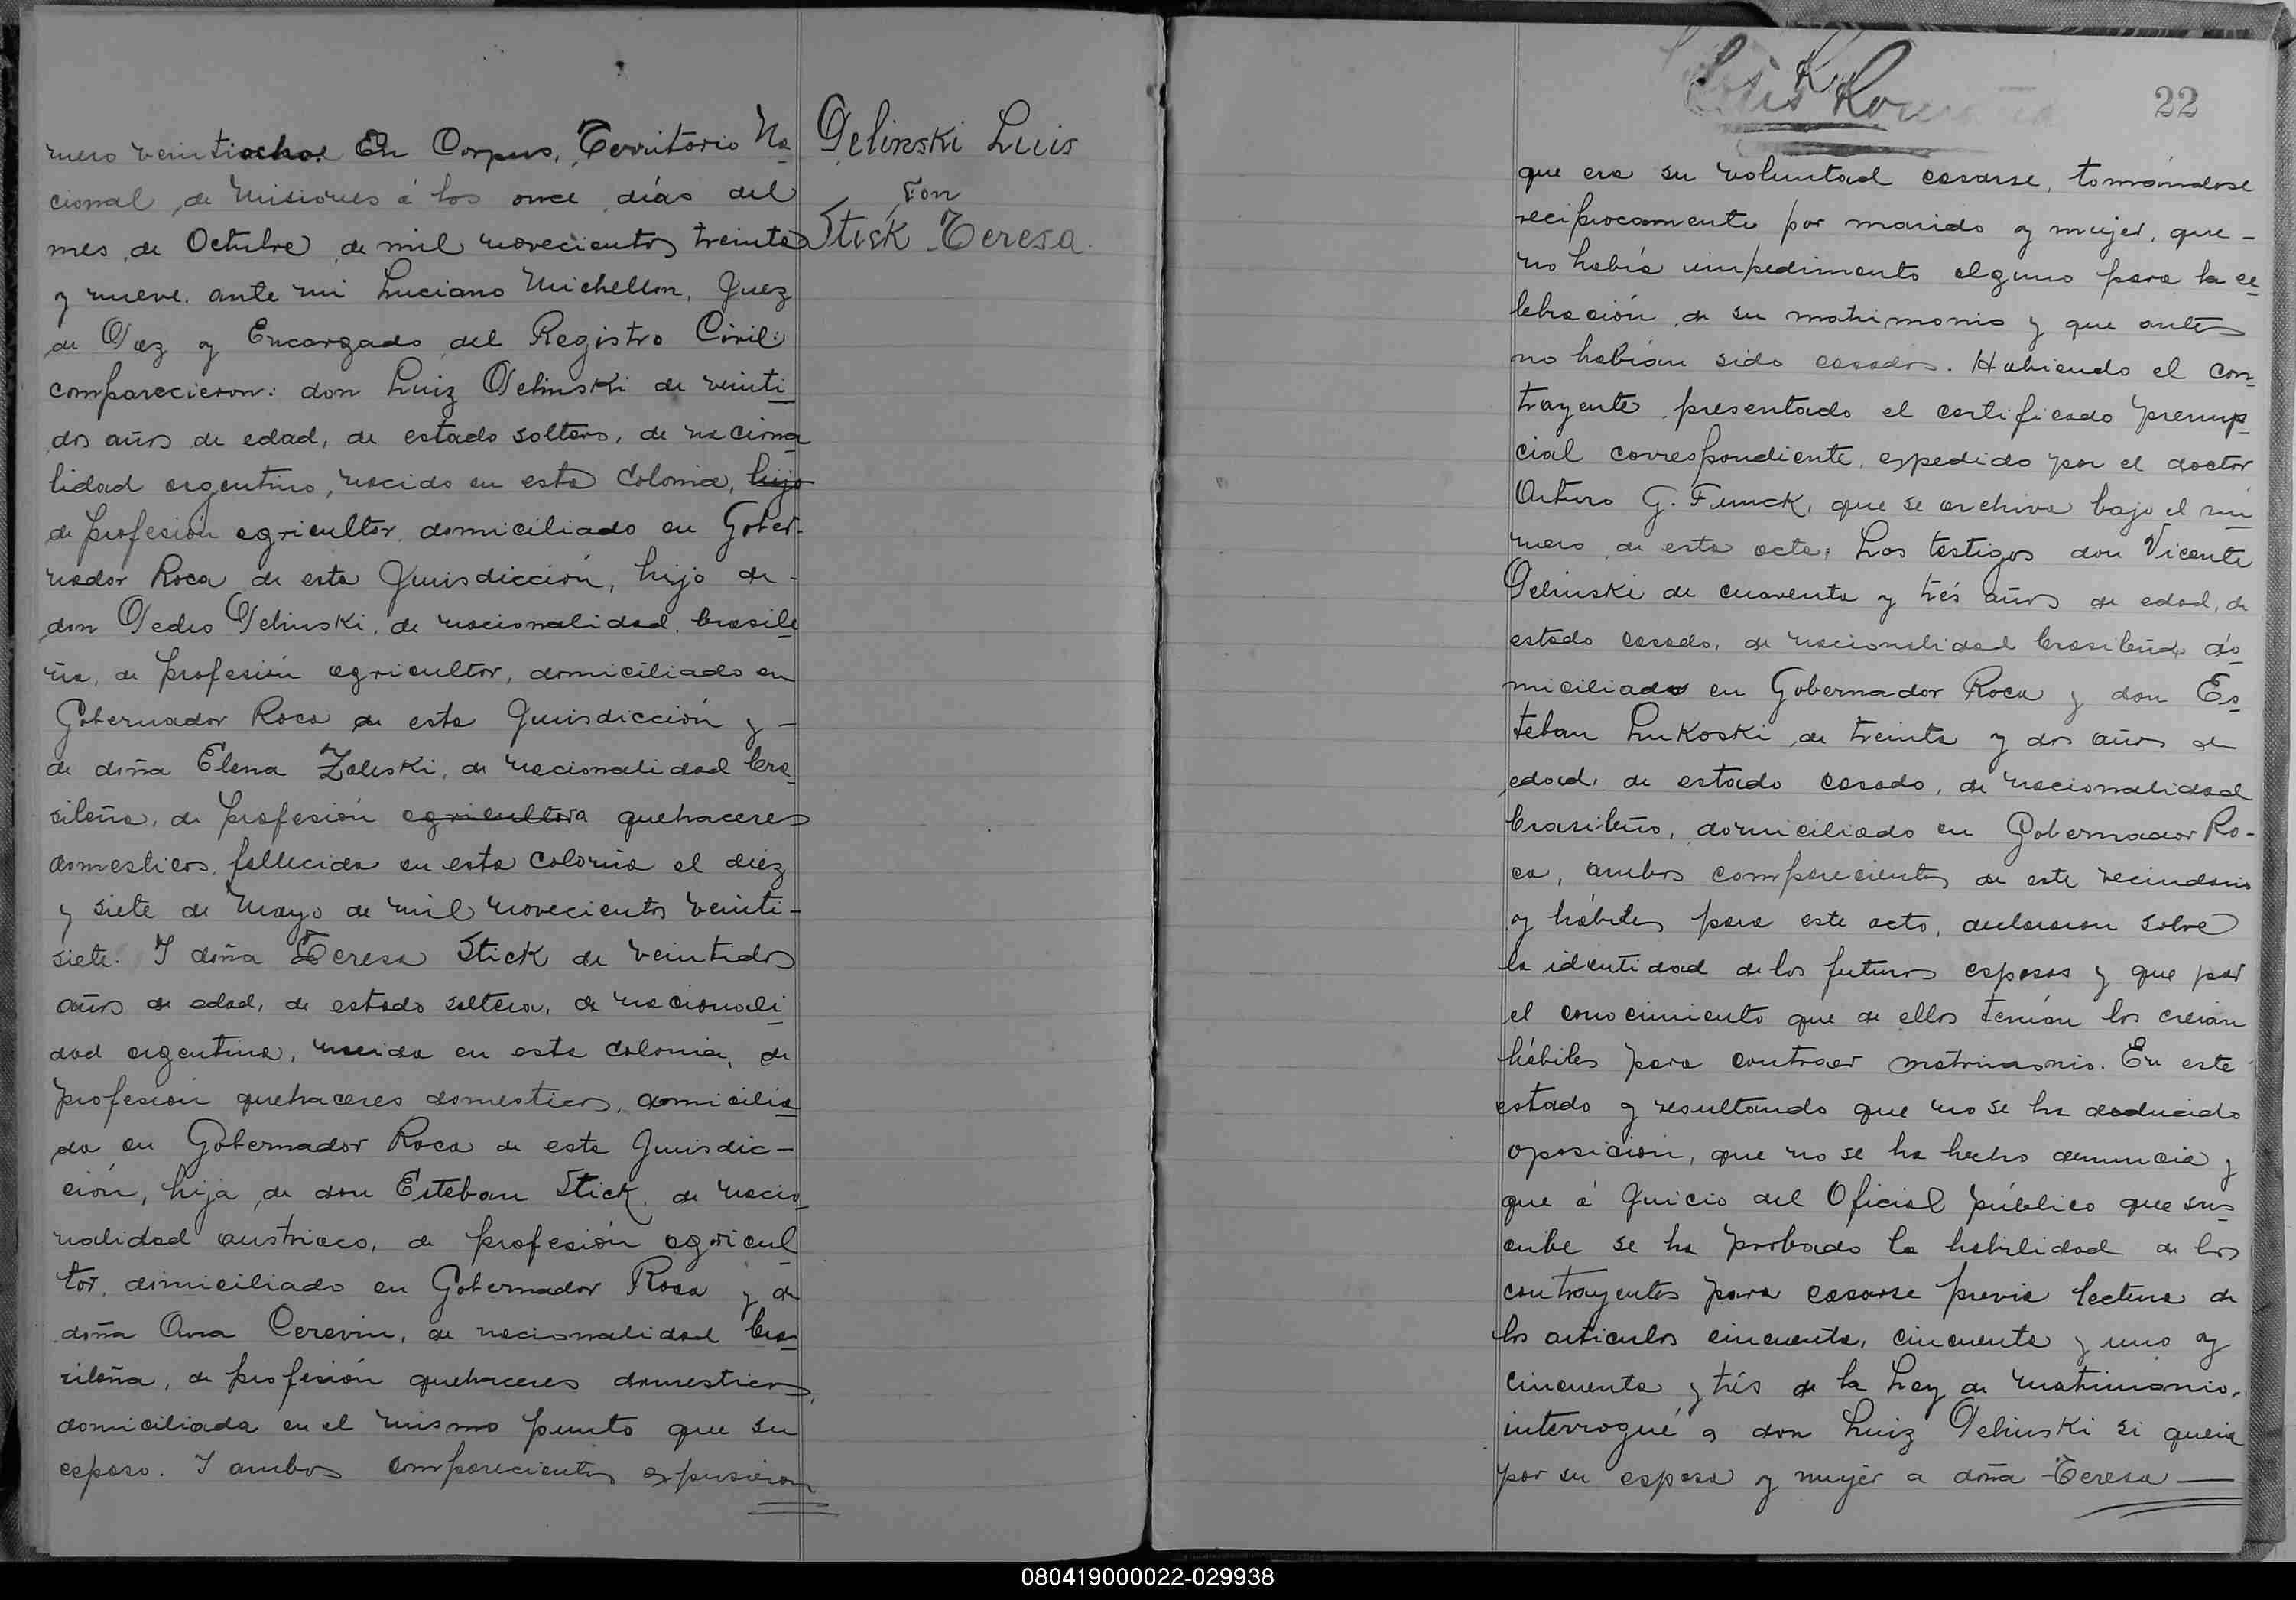 mero veintiocho. En Corpus, Territorio Na
cional de Misiones á los once días del
mes de Octubre de mil novecientos treinta
y nueve, ante mi Luciano Michellon, Juez
de Paz y Encargado del Registro Civil:
comparecieron: don Luiz Pelinski de veinti
dos años de edad, de estado soltero, de naciona
lidad argentino, nacido en esta Colonia, hijo
de profesión agricultor, domiciliado en Gober-
nador Roca de esta Jurisdicción, hijo de -
don Pedro Pelinski, de nacionalidad brasile
ña, de profesión agricultor, domiciliado en
Gobernador Roca de esta Jurisdicción y -
de doña Elena Zaleski, de nacionalidad bra
sileña, de profesión agricultora quehaceres
domesticos, fallecida en esta colonia el diez
y siete de Mayo de mil novecientos veinti-
siete. I doña Teresa Stick de veintidos
años de edad, de estado soltera, de nacionali
dad argentina, nacida en esta colonia, de
profesion quehaceres domesticos, domicilia
da en Gobernador Roca de esta Jurisdic-
ción, hija de don Esteban Stick, de nacio
nalidad austriaco, de profesión agricul
tor, domiciliado en Gobernador Roca y de
doña Ana Cerevin, de nacionalidad bra
sileña, de profesión quehaceres domesticos,
domiciliada en el mismo punto que su
esposo. I ambos comparecientes expusieron
Pelinski Luis
con
Stisk Teresa.
22
que era su voluntad casarse, tomándose
reciprocamente por marido y mujer, que -
no había impedimento alguno para la ce
lebración de su matrimonio y que antes
no habían sido casados. Habiendo el con
trayente presentado el certificado prenup
cial correspondiente, expedido por el doctor
Arturo G. Funck, que se archiva bajo el nú
mero de esta acta, Los testigos don Vicente
Pelinski de cuarenta y trés años de edad, de
estado casado, de nacionalidad brasileña do
miciliado en Gobernador Roca y don Es
teban Lukoski de treinta y dos años de
edad, de estado casado, de nacionalidad
brasileño, domiciliado en Gobernador Ro-
ca, ambos comparecientes de este vecindario
y hábiles para este acto, declararon sobre
la identidad de los futuros esposos y que por
el conocimiento que de ellos tenían los creían
hábiles para contraer matrimonio. En este
estado y resultando que no se ha deducido
oposición, que no se ha hecho denuncia y
que á Juicio del Oficial público que sus
cribe se ha probado la habilidad de los
contrayentes para casarse previa lectura de
los articulos cincuenta, cincuenta y uno y
cincuenta y trés de la Ley de Matrimonio,
interrogué a don Luiz Pelinski si quería
por su esposa y mujer a doña Teresa —
080419000022-029938